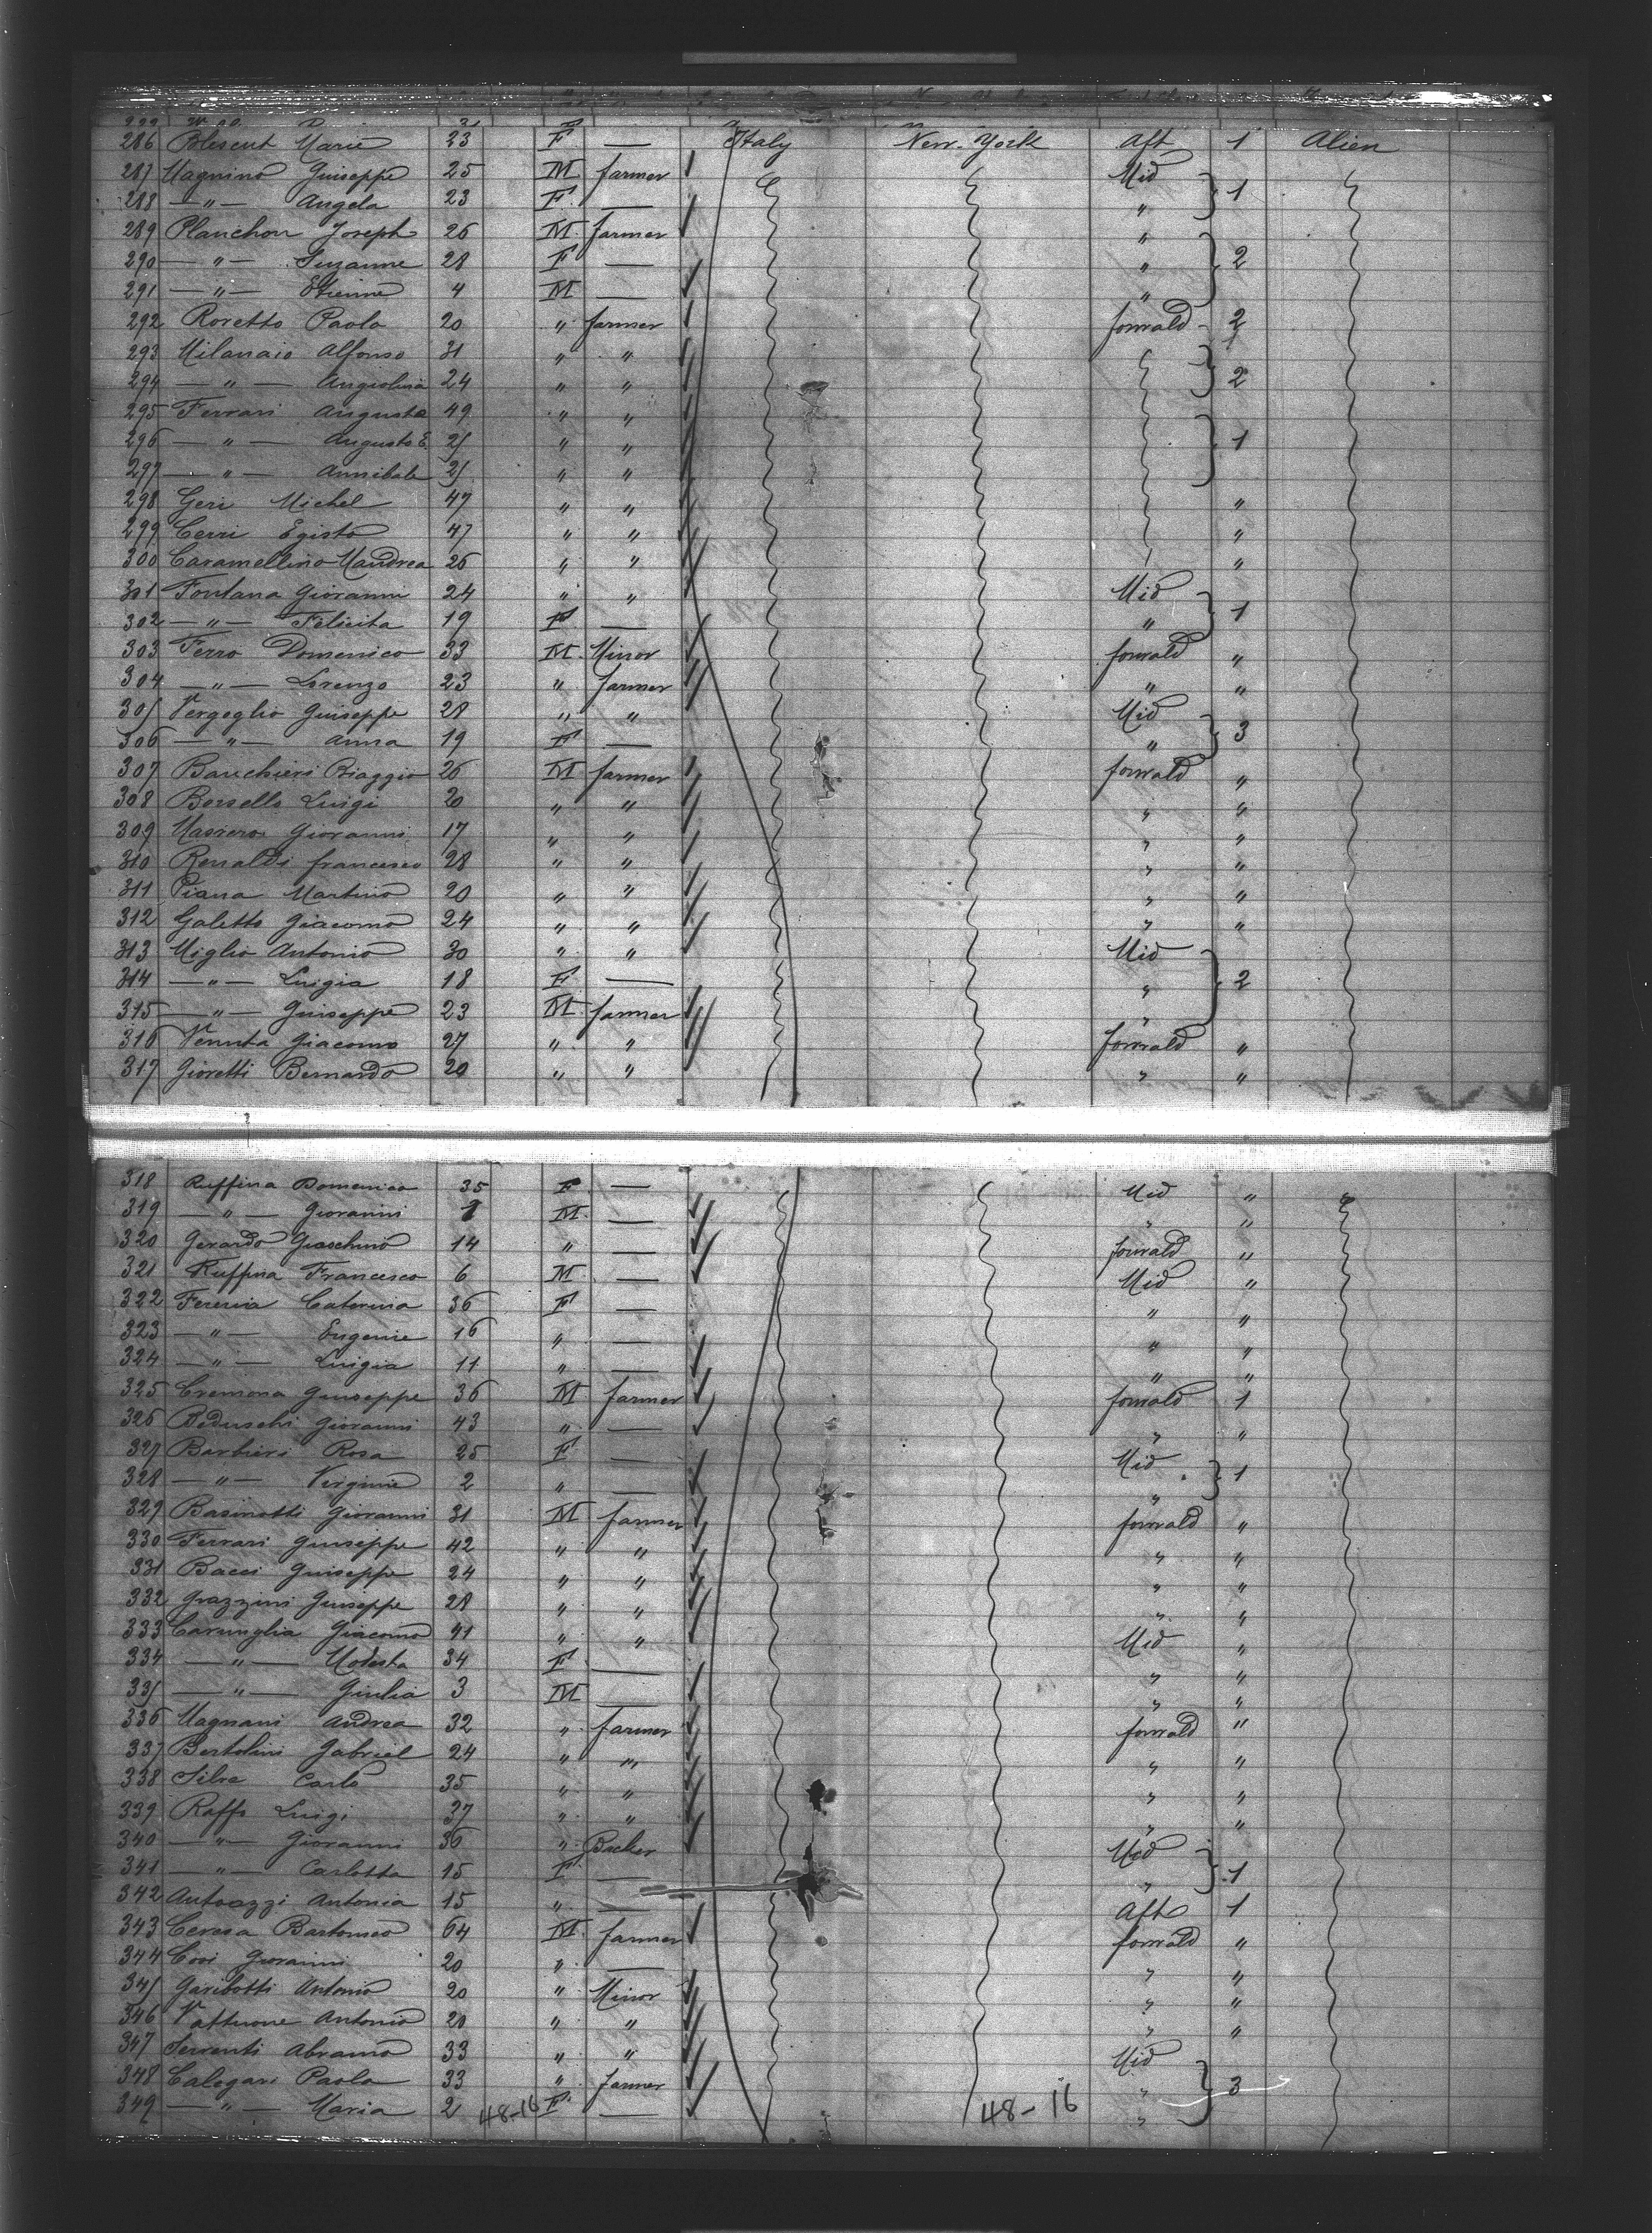 286 Blescut Marie 23 F — Italy New-York Aft 1 Alien
287 Magnino Giuseppe 25 M farmer Mid
288 —"— Angela 23 F — " 1
289 Planchon Joseph 26 M farmer "
290 —"— Suzanne 28 F — " 2
291 —"— Etienne 4 M — "
292 Roretto Paolo 20 " farmer forwald 2
293 Milanaio Alfonso 31 " "
294 —"— Angiolina 24 " " 2
295 Ferrari Auguste 49 " "
296 —"— Augusto E. 25 " " 1
297 —"— Annibale 25 " "
298 Geri Michel 47 " " "
299 Cerri Egisto 47 " " "
300 Caramellino Mandrea 26 " " "
301 Fontana Giovanni 24 " " Mid
302 —"— Felicita 19 F — " 1
303 Ferro Domenico 33 M Minor forwald "
304 —"— Lorenzo 23 " farmer " "
305 Vergoglio Giuseppe 28 " " Mid
306 —"— Anna 19 F — " 3
307 Banchieri Biaggio 26 M farmer forwald "
308 Borsello Luigi 20 " " " "
309 Masiero Giovanni 17 " " " "
310 Renaldi francesco 28 " " " "
311 Piana Martino 20 " " " "
312 Galetto Giacomo 24 " " " "
313 Miglio Antonio 30 " " Mid
314 —"— Luigia 18 F — " 2
315 —"— Giuseppe 23 M farmer "
316 Venuta Giacomo 27 " " forwald "
317 Gioretti Bernardo 20 " " " "
318 Ruffina Domenica 35 F — Mid "
319 —"— Giovanni M — " "
320 Gerardo Gioschino 14 " — forwald "
321 Ruffina Francesco 6 M — Mid "
322 Fereria Caterina 36 F — " "
323 —"— Eugenie 16 " — " "
324 —"— Luigia 11 " — " "
325 Cremona Giuseppe 36 M farmer forwald 1
326 Beduschi Giovanni 43 " — " "
327 Barbieri Rosa 25 F — Mid
328 —"— Virginie 2 " — " 1
329 Basinotti Giovanni 31 M farmer forwald "
330 Ferrari Giuseppe 42 " " " "
331 Bacci Giuseppe 24 " " " "
332 Grazzini Giuseppe 28 " " " "
333 Caruniglia Giacomo 41 " " Mid "
334 —"— Modesta 34 F — " "
335 —"— Giulia 3 M — " "
336 Magnani Andrea 32 " farmer forwald "
337 Bertolini Gabriel 24 " " " "
338 Silva Carlo 35 " " " "
339 Raffo Luigi 37 " " " "
340 —"— Giovanni 36 " Backer Mid
341 —"— Carlotta 15 F — " 1
342 Antoazzi Antonia 15 " — Aft 1
343 Ceresa Bartomeo 64 M farmer forwald "
344 Covi Giovanni 20 " — " "
345 Garibotti Antonio 20 " Minor " "
346 Vattuone Antonio 20 " " " "
347 Serventi Abramo 33 " " Mid
348 Calegari Paolo 33 " farmer " 3
349 —"— Maria 2 48-16 F — 48-16 "